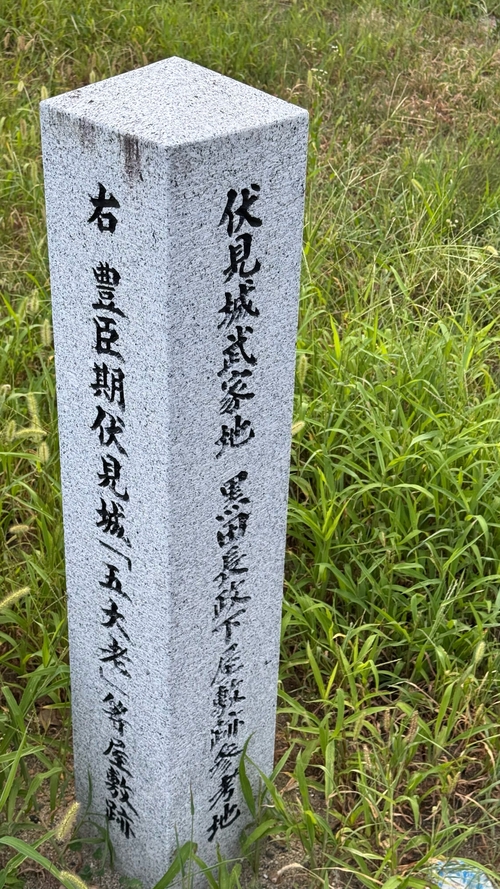 伏見城武家地 黒田長政下屋敷跡参考地
右 豊臣期伏見城「五大老」等屋敷跡